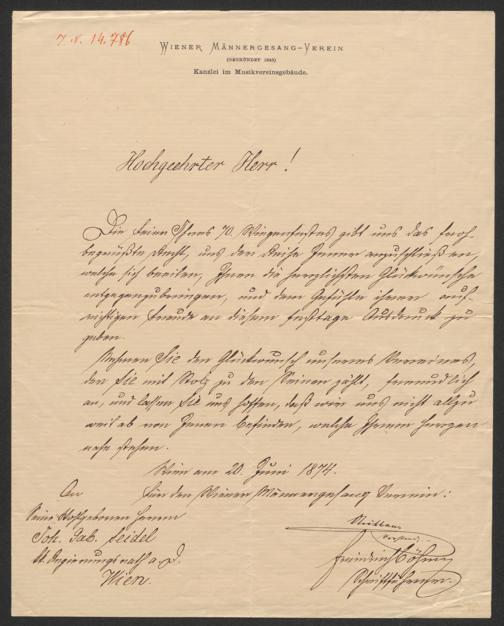 I. N. 14.786
WIENER MÄNNERGESANG-VEREIN
(GEGRÜNDET 1843)
Kanzlei im Musikvereinsgebäude.
Hochgeehrter Herr!
Die Feier Ihres 70. Wiegenfestes gibt uns das froh-
begrüßte Recht, uns der Reihe Jener anzuschließen,
welche sich beeilen, Ihnen die herzlichsten Glückwünsche
entgegenzubringen, und dem Gefühle ihrer auf-
richtigen Freude an diesem Festtage Ausdruck zu
geben.
Nehmen Sie den Glückwunsch unseres Vereines,
der Sie mit Stolz zu den Seinen zählt, freundlich
an, und lassen Sie uns hoffen, daß wir uns nicht allzu
weit ab von Jenen befinden, welche Ihrem Herzen
nahe stehen.
Wien am 20. Juni 1874.
An
Für den Wiener Männergesang Verein:
Seine Hochgeboren Herrn
Joh. Gab. Seidel
kk. Regierungsrath a. D.
Wien.
Vorstand.
Schriftführer.